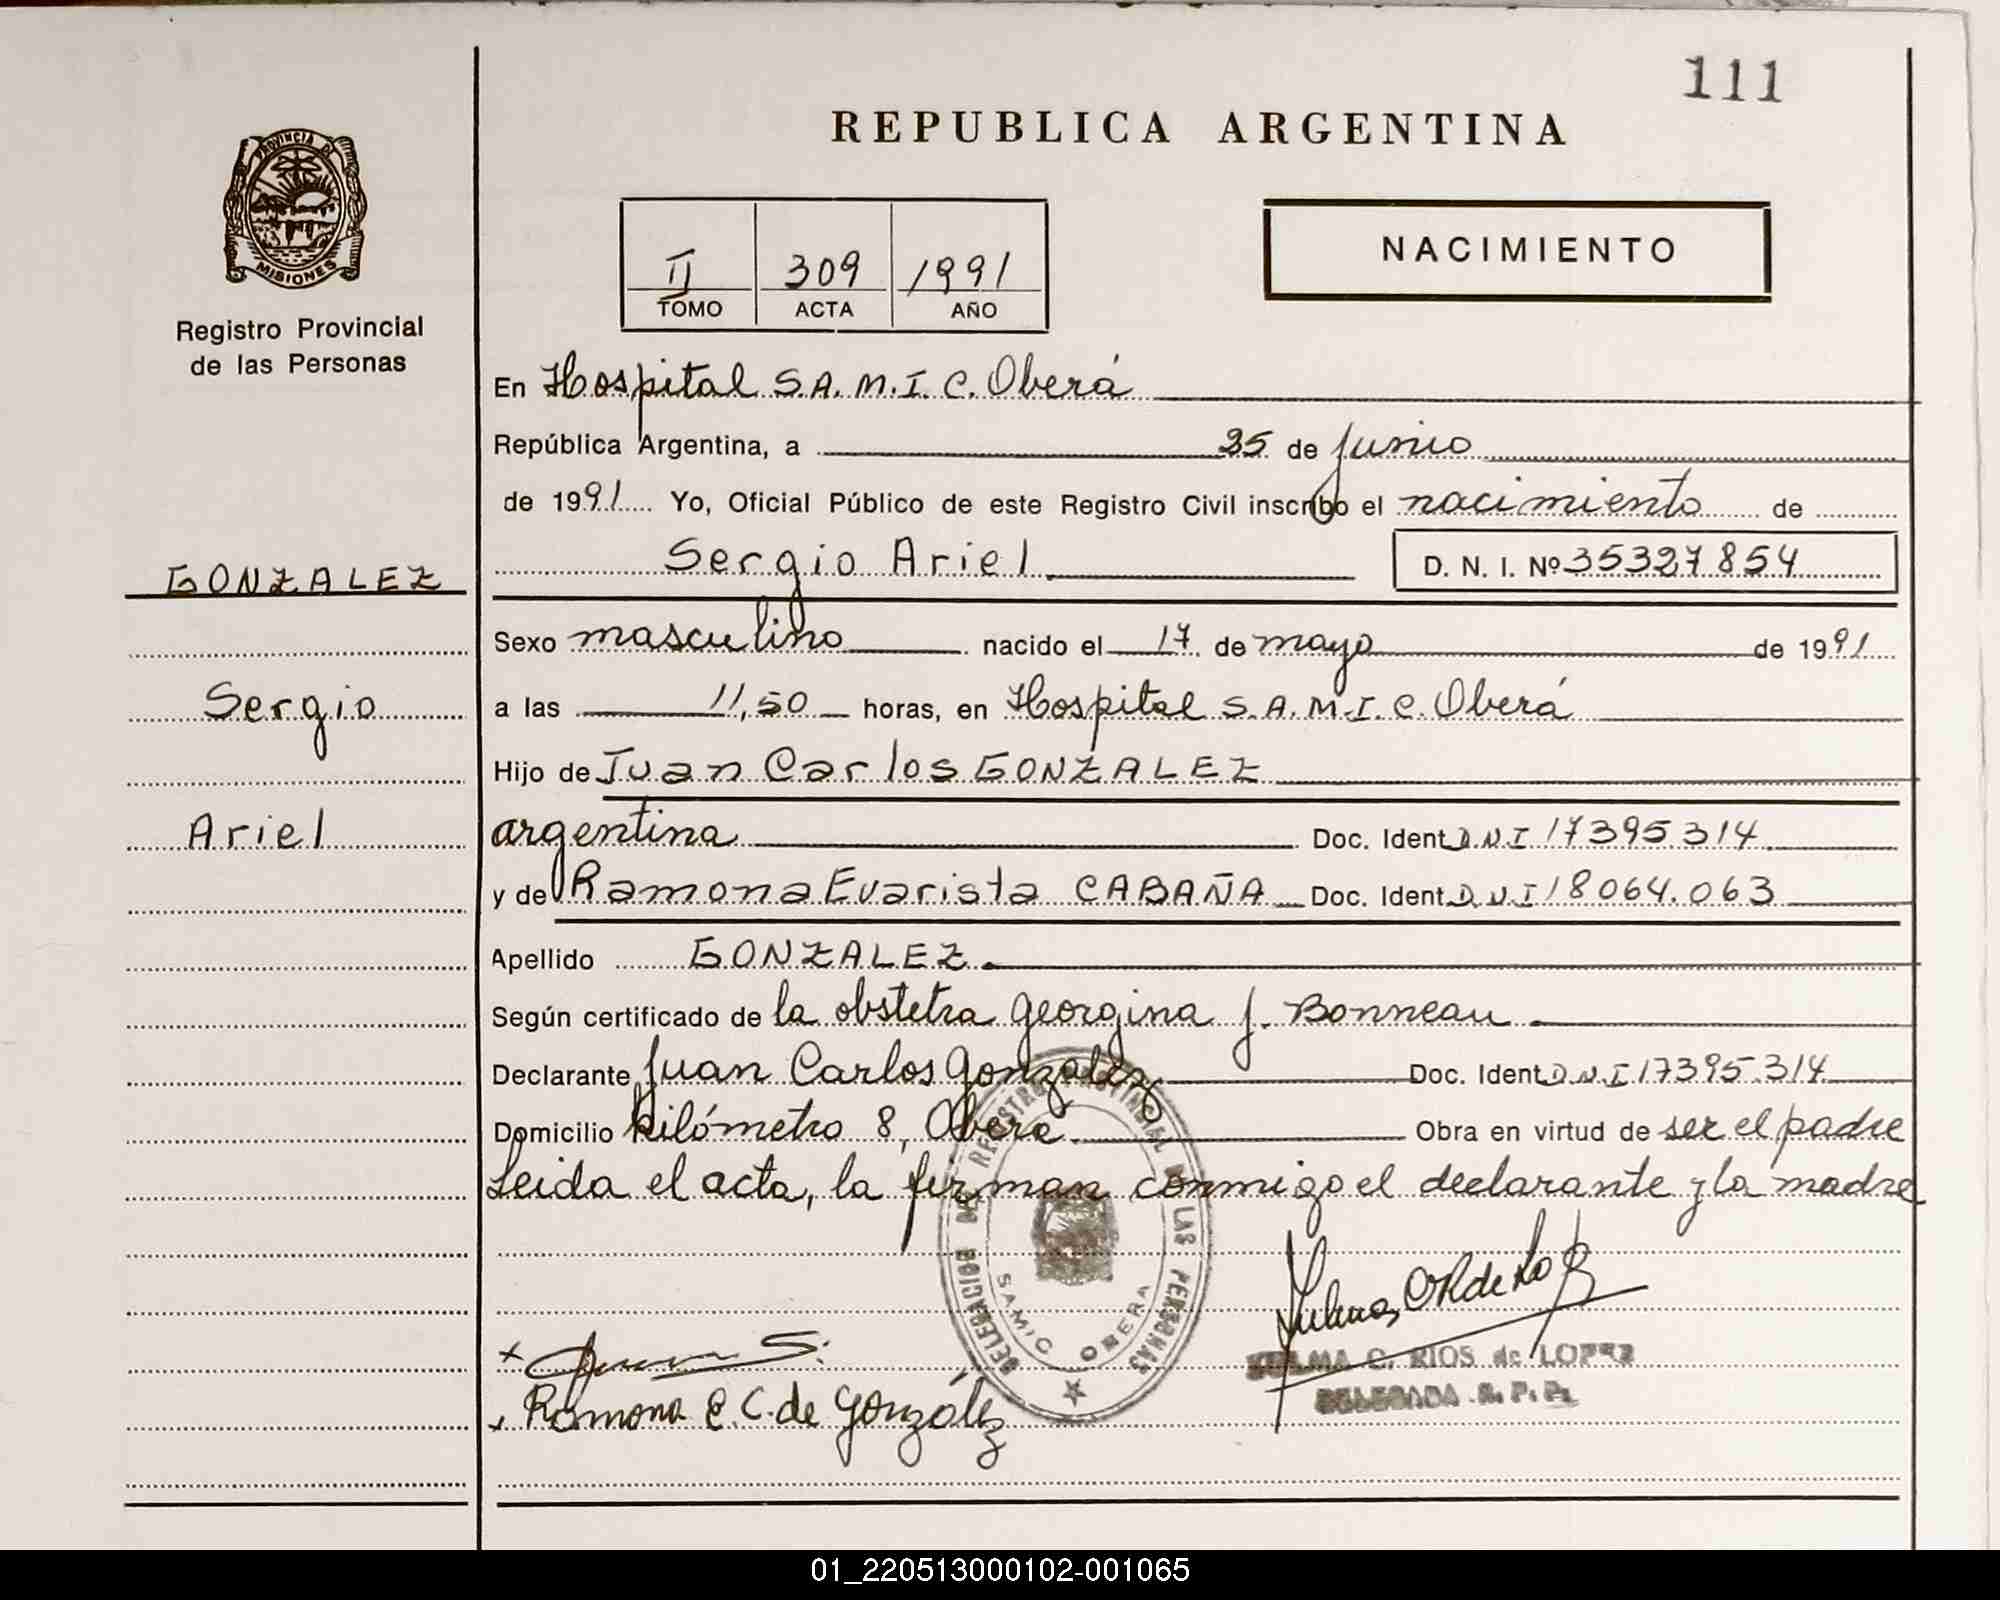 111
REPUBLICA ARGENTINA
PROVINCIA DE
MISIONES
Registro Provincial
de las Personas
II 309 1991
TOMO ACTA AÑO
NACIMIENTO
En Hospital S.A.M.I.C. Oberá
República Argentina, a 25 de junio
de 1991 Yo, Oficial Público de este Registro Civil inscribo el nacimiento de
GONZALEZ
Sergio
Ariel
Sergio Ariel D. N. I. Nº 35327854
Sexo masculino nacido el 17 de mayo de 1991
a las 11,50 horas, en Hospital S.A.M.I.C. Oberá
Hijo de Juan Carlos GONZALEZ
argentina Doc. Ident. D.N.I 17395.314
y de Ramona Evarista CABAÑA Doc. Ident. D.N.I 18064.063
Apellido GONZALEZ
Según certificado de la obstetra Georgina J. Bonneau
Declarante Juan Carlos Gonzalez Doc. Ident. D.N.I 17395.314
Domicilio kilómetro 8, Oberá Obra en virtud de ser el padre
Leida el acta, la firman conmigo el declarante y la madre
DELEGACION DEL REGISTRO PROVINCIAL DE LAS PERSONAS
SAMIC OBERA
C. RIOS de LOPEZ
DELEGADA R. P. P.
Ramona E. C. de González
01_220513000102-001065